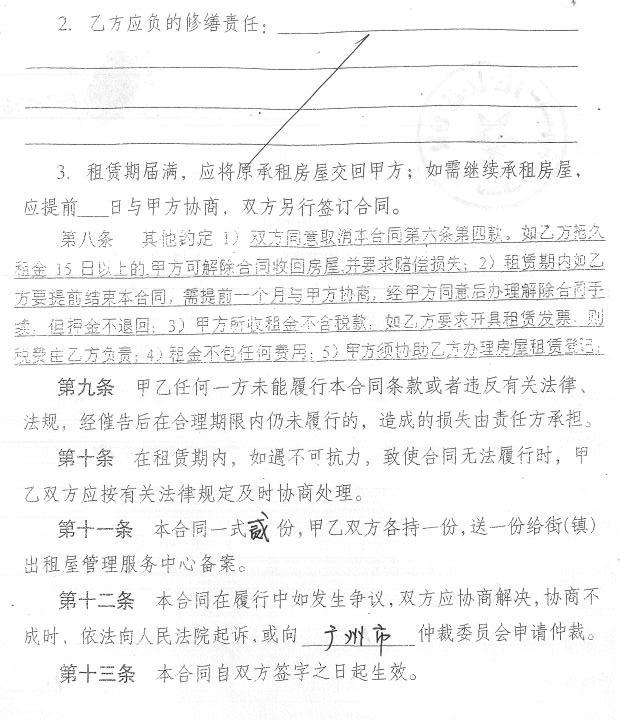 2. 乙方应负的修缮责任:
3. 租赁期届满,应将原承租房屋交回甲方;如需继续承租房屋,
应提前___日与甲方协商,双方另行签订合同。
第八条 其他约定 1) 双方同意取消本合同第六条第四款。如乙方拖欠
租金 15 日以上的,甲方可解除合同收回房屋,并要求赔偿损失;2) 租赁期内如乙
方要提前结束本合同,需提前一个月与甲方协商,经甲方同意后办理解除合同手
续,但押金不退回;3) 甲方所收租金不含税款,如乙方要求开具租赁发票,则
税费由乙方负责;4) 租金不包任何费用;5) 甲方须协助乙方办理房屋租赁登记;
第九条 甲乙任何一方未能履行本合同条款或者违反有关法律、
法规,经催告后在合理期限内仍未履行的,造成的损失由责任方承担。
第十条 在租赁期内,如遇不可抗力,致使合同无法履行时,甲
乙双方应按有关法律规定及时协商处理。
第十一条 本合同一式贰份,甲乙双方各持一份,送一份给街(镇)
出租屋管理服务中心备案。
第十二条 本合同在履行中如发生争议,双方应协商解决,协商不
成时,依法向人民法院起诉,或向 广州市 仲裁委员会申请仲裁。
第十三条 本合同自双方签字之日起生效。